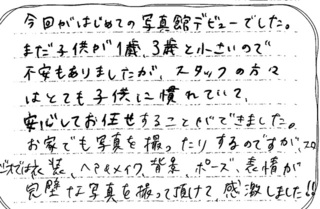 今回がはじめての写真館デビューでした。
まだ子供が1歳、3歳と小さいので
不安もありましたが、スタッフの方々
はとても子供に慣れていて、
安心してお任せすることができました。
お家でも写真を撮ったりするのですが、プロ
どれでは衣装、ヘアメイク、背景、ポーズ、表情が
完璧な写真を撮って頂けて感激しました!!